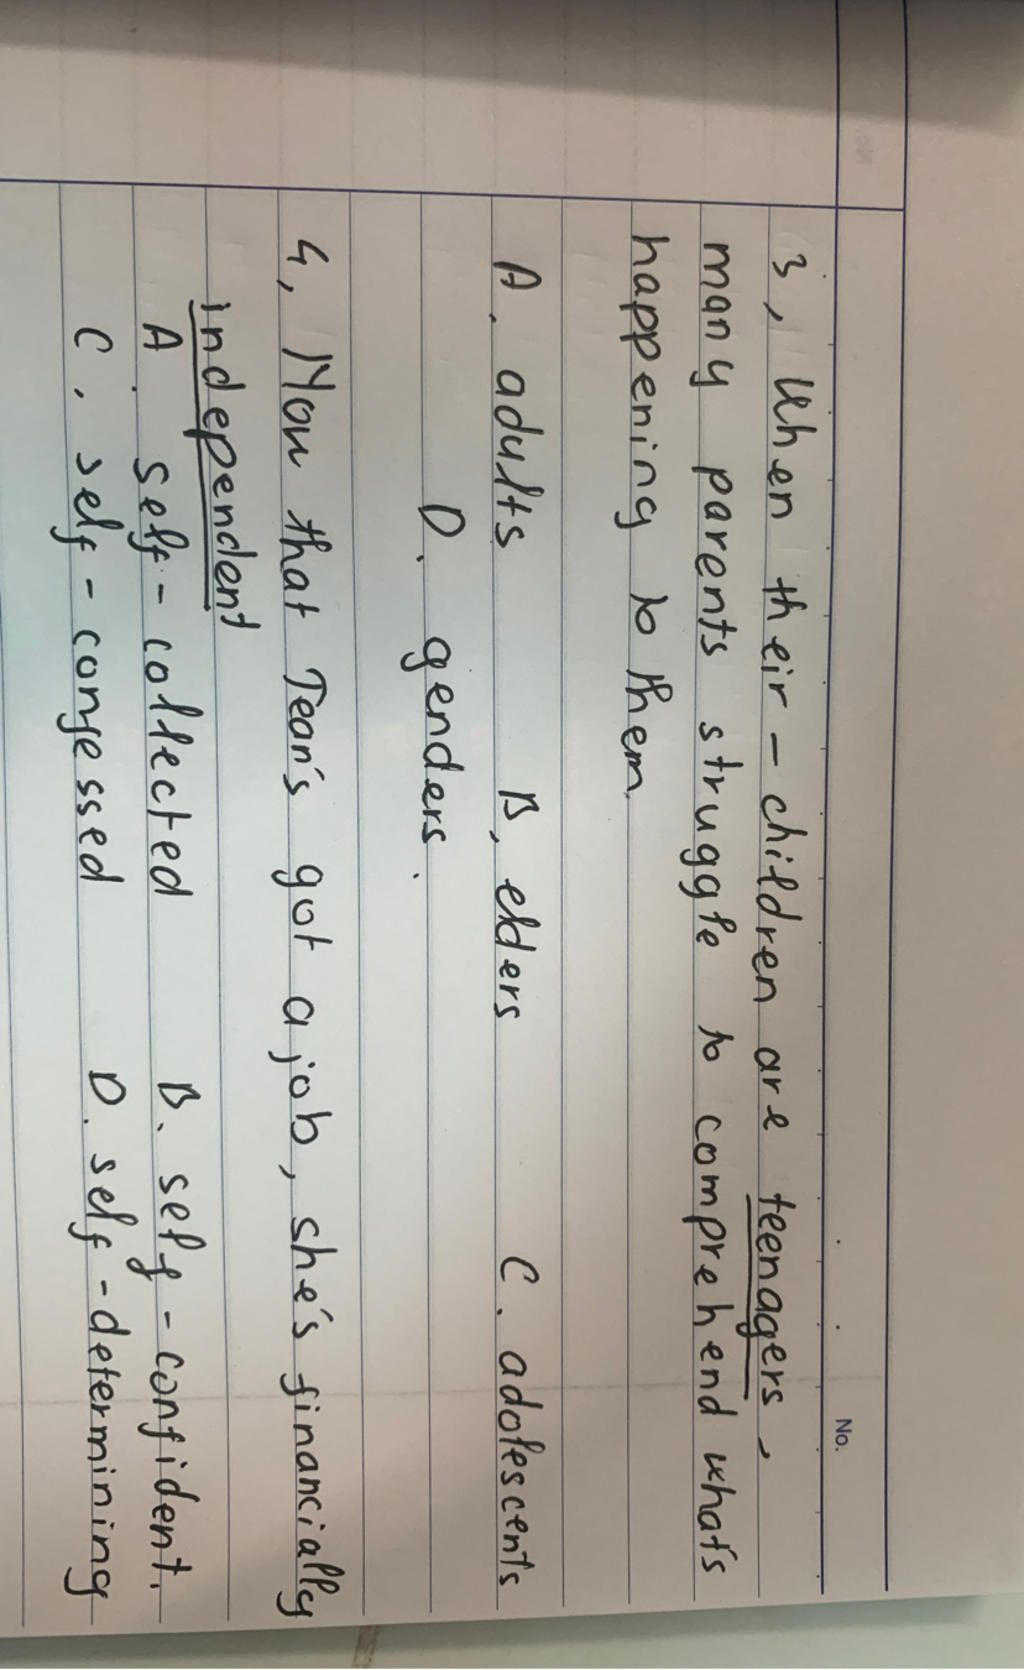 No.
3, When their - children are teenagers,
many parents struggle to comprehend what's
happening to them.
A. adults B, elders C. adolescents
D. genders.
4, Now that Jean's got a job, she's financially
independent
A. self - collected B. self - confident.
C, self - confessed D. self - determining